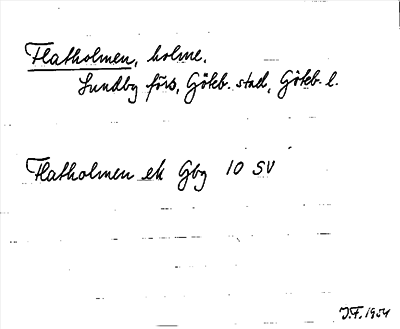 Flatholmen, holme.
Lundby förs, Göteb. stad, Göteb. l.
Flatholmen ek Gbg 10 SV
J.F. 1954